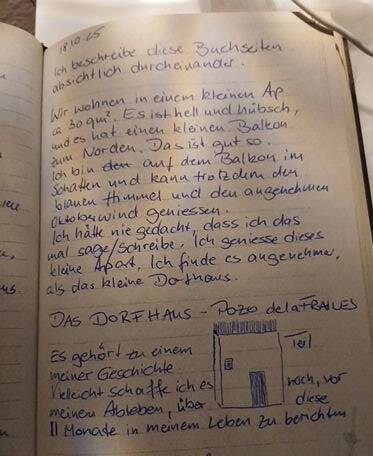 18.10.25
Ich beschreibe diese Buchseiten
absichtlich durcheinander.
Wir wohnen in einem kleinen Ap
ca 30 qm². Es ist hell und hübsch,
und es hat einen kleinen Balkon
zum Norden. Das ist gut so.
Ich bin den auf dem Balkon im
Schatten und kann trotzdem den
blauen Himmel und den angenehmen
Oktoberwind geniessen.
Ich hätte nie gedacht, dass ich das
mal sage/schreibe. Ich geniesse dieses
kleine Apart. Ich finde es angenehmer,
als das kleine Dorfhaus.
DAS DORFHAUS - POZO de la FRAILES
Es gehört zu einem Teil
meiner Geschichte.
Vielleicht schaffe ich es noch, vor
meinem Ableben, über diese
11 Monate in meinem Leben zu berichten